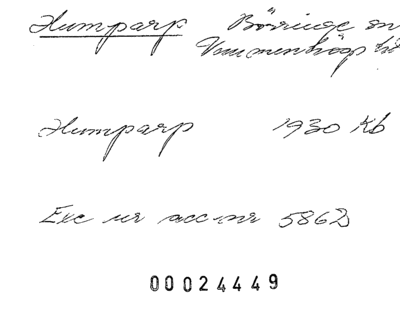 Humparp Börringe sn
Vemmenhögs hd
Humparp 1930 Kb
Exc ur acc nr 5862
00024449